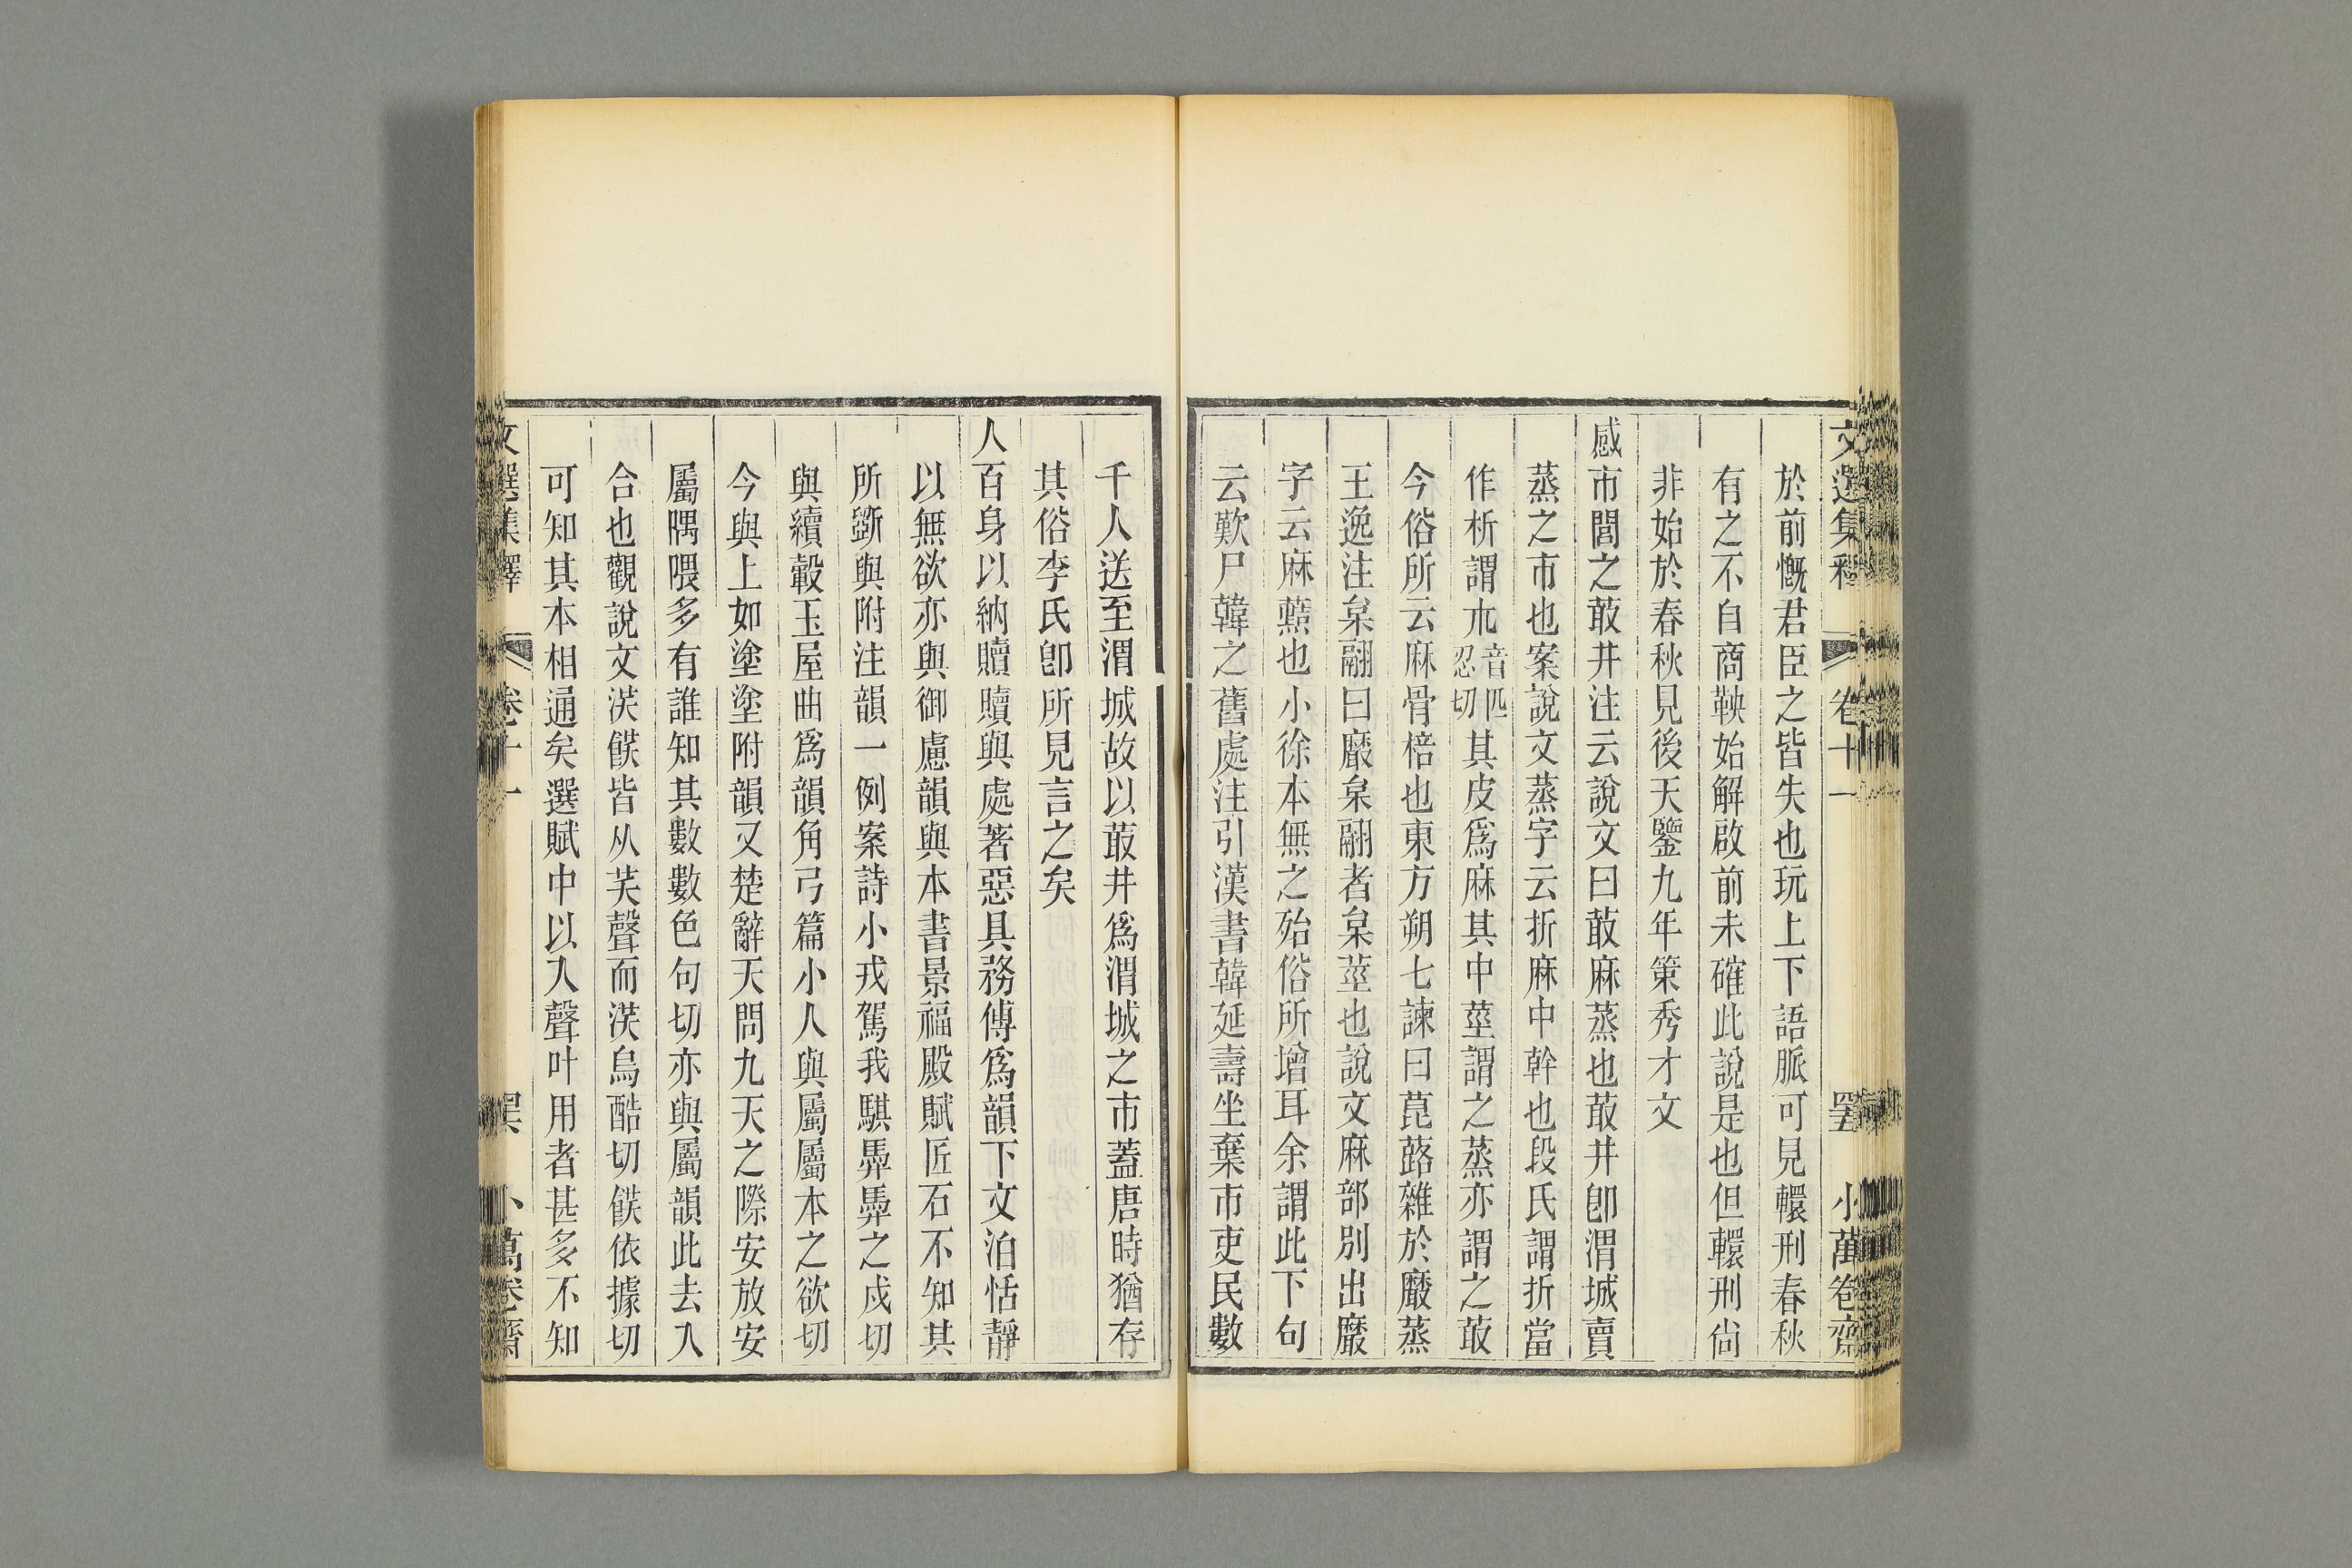 文選集釋 卷十一 小萬卷齋
於前慨君臣之皆失也玩上下語脈可見轘刑春秋
有之不自商鞅始解啟前未確此說是也但轘刑尙
非始於春秋見後天鑒九年策秀才文
感市閭之菆井注云說文曰菆麻蒸也菆井卽渭城賣
蒸之市也案說文蒸字云折麻中幹也段氏謂折當
作析謂朩音匹忍切其皮爲麻其中莖謂之蒸亦謂之菆
今俗所云麻骨棓也東方朔七諫曰菎蕗雜於黀蒸
王逸注枲翮曰黀枲翮者枲莖也說文麻部別出黀
字云麻藍也小徐本無之殆俗所增耳余謂此下句
云歎尸韓之舊處注引漢書韓延壽坐棄市吏民數
千人送至渭城故以菆井爲渭城之市蓋唐時猶存
其俗李氏卽所見言之矣
人百身以納贖贖與處著惡具務傅爲韻下文泊恬靜
以無欲亦與御慮韻與本書景福殿賦匠石不知其
所斲與附注韻一例案詩小戎駕我騏馵馵之戍切
與續轂玉屋曲爲韻角弓篇小人與屬屬本之欲切
今與上如塗塗附韻又楚辭天問九天之際安放安
屬隅隈多有誰知其數數色句切亦與屬韻此去入
合也觀說文渼饫皆从芺聲而渼烏酷切饫依據切
可知其本相通矣選賦中以入聲叶用者甚多不知
文選集釋 卷十一 小萬卷齋